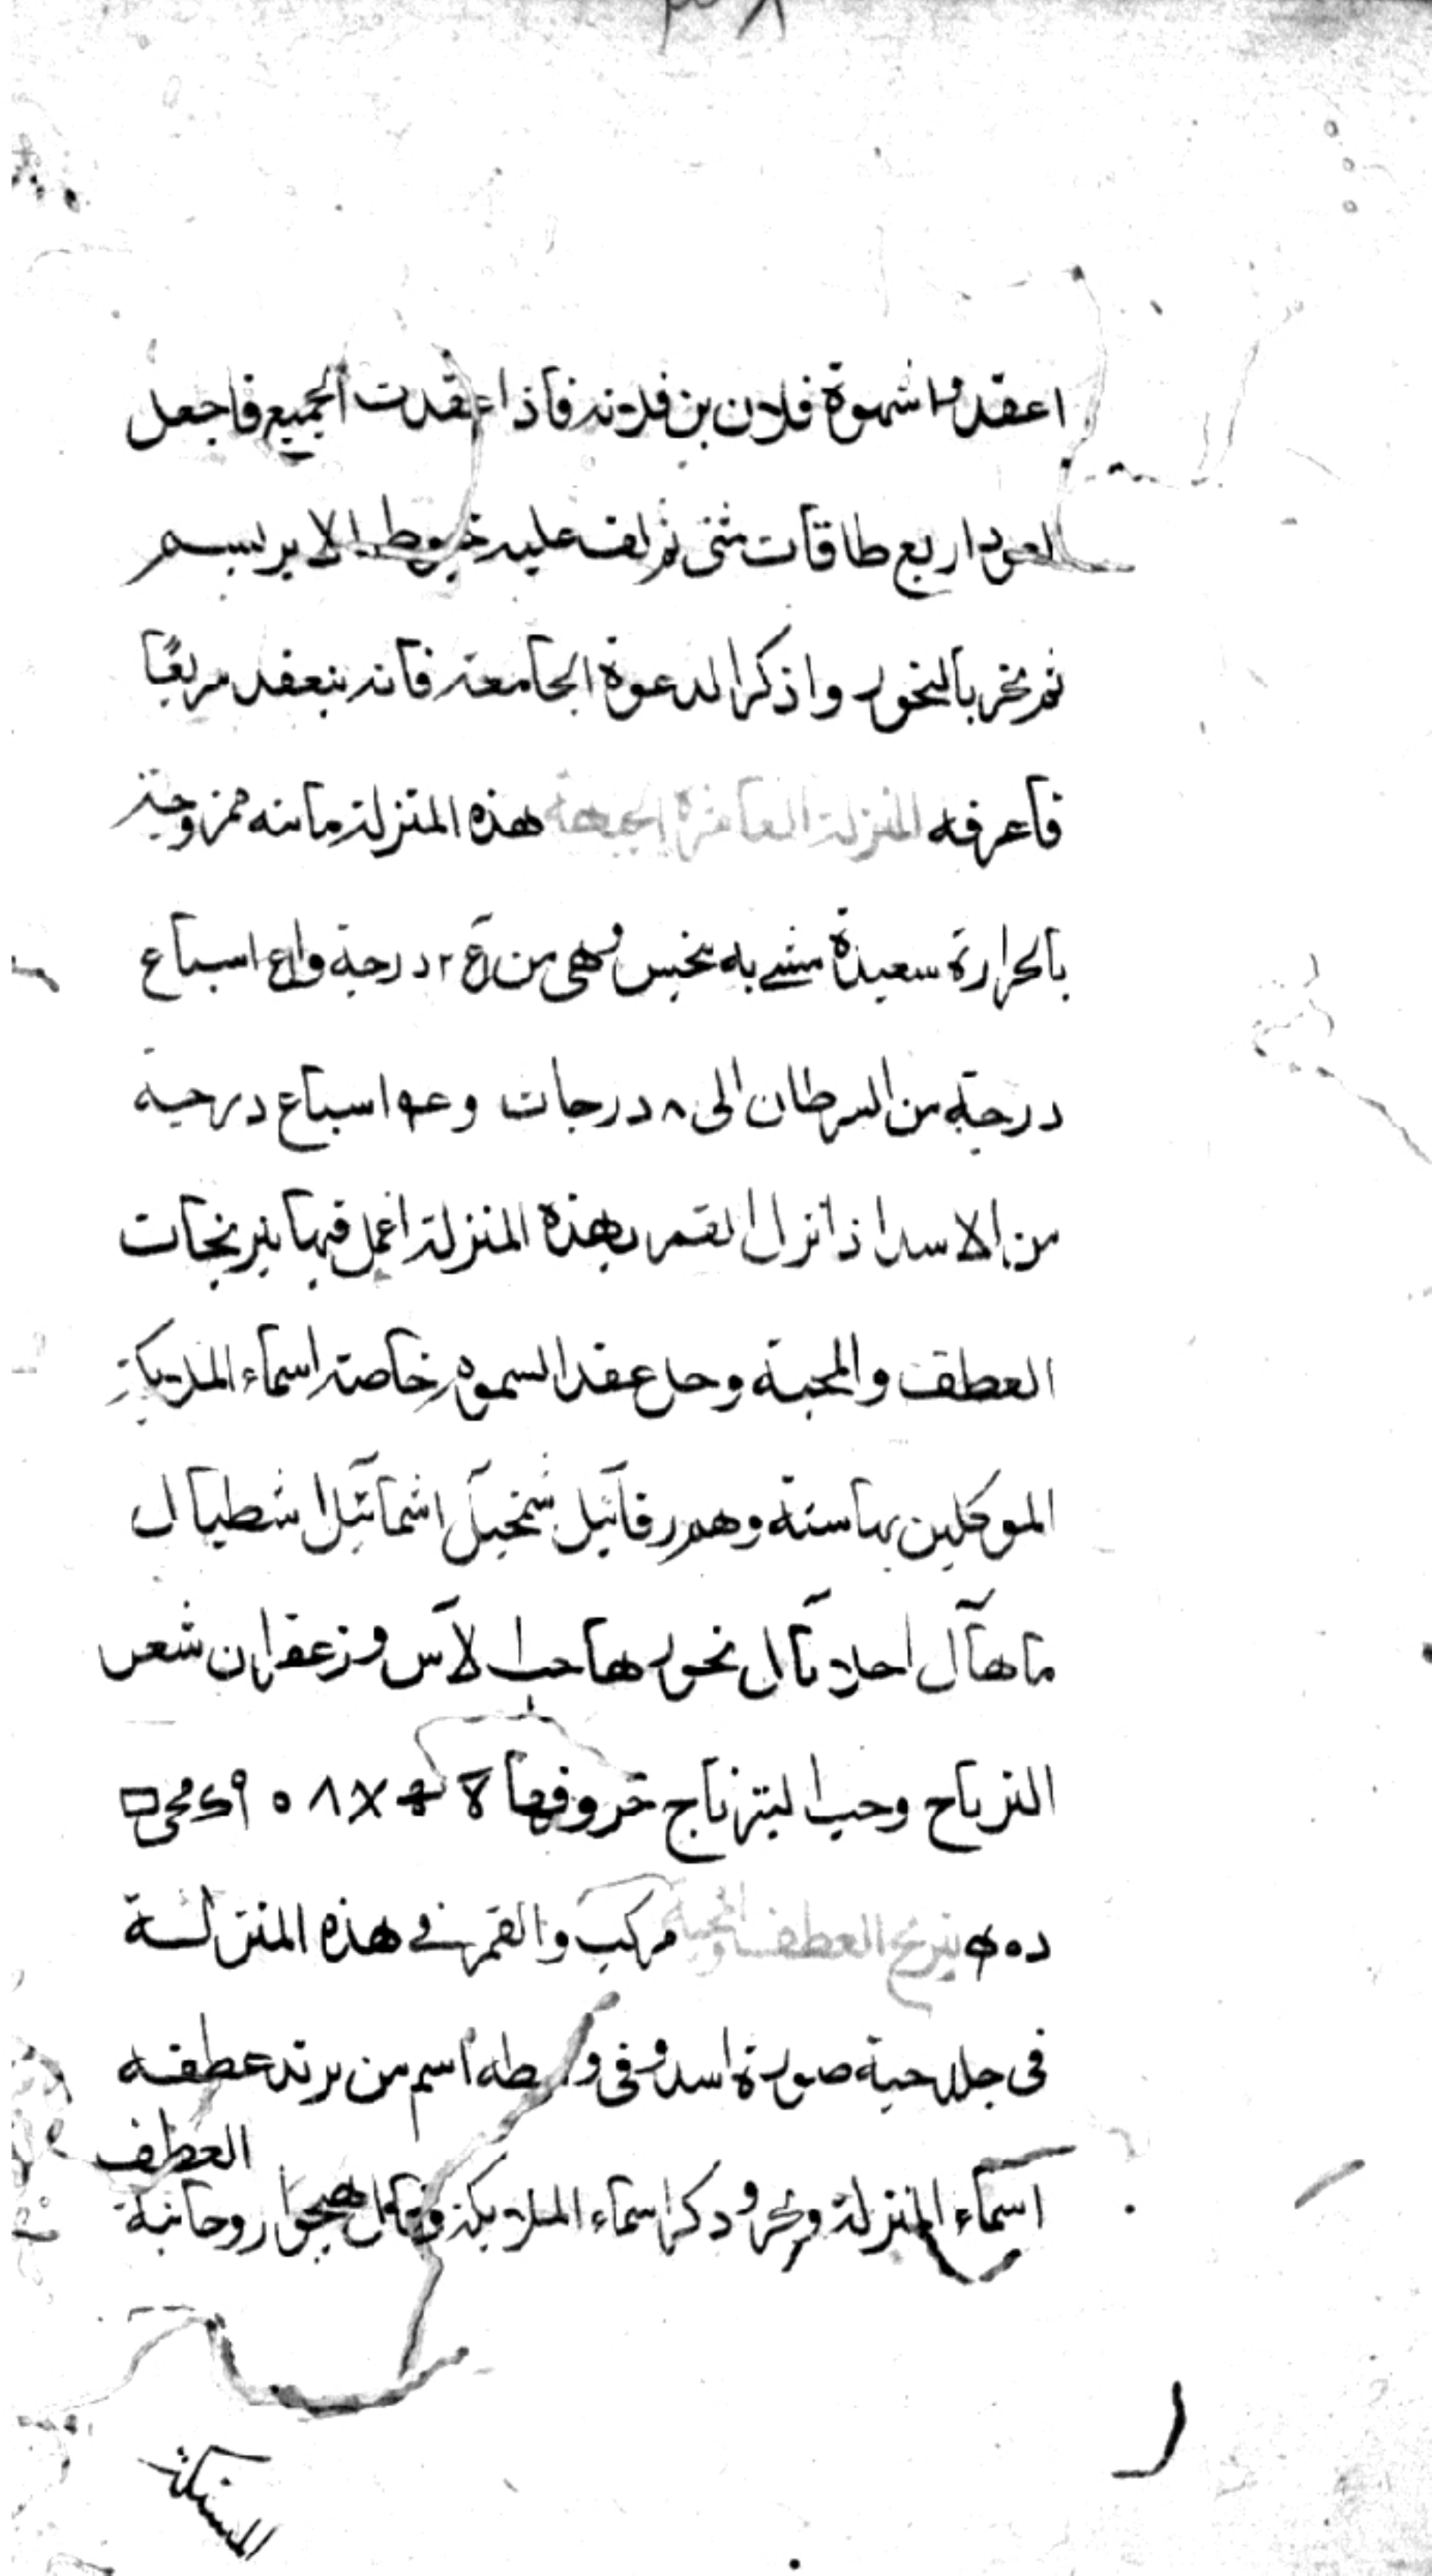 اعقدوا شهوة فلان بن فلانه فاذا عقدت الجميع فاجعل
العود اربع طاقات مثنى ثم لف عليه خيوط الابريسم
ثم بخر بالبخور واذكر الدعوة الجامعة فانه ينعقد سريعًا
فاعرفه المنزلة العاشرة الجبهة هذه المنزلة مائيه ممزوجة
بالحرارة سعيدة مشربه بنحس وهي من درجة اسباع
درجة من السرطان الى ٨ درجات و اسباع درجة
من الاسد اذا نزل القمر بهذه المنزلة اعمل فيها نيرنجات
العطف والمحبة وحل عقد الشهوة خاصة اسماء الملايكة
الموكلين بها ستة وهم رفائيل اشمائيل اشطيال
ماهآل بخورها حب الآس وزعفران شعر
الزباح وحب حروفها
نيرنج العطف والمحبة مركب والقمر في هذه المنزلة
فى جلد حية صورة اسد وفى وسطه اسم من يريد عطفه
العطف
اسماء المنزلة وبخر وذكر اسماء الملايكة وقال هيجوا روحانية